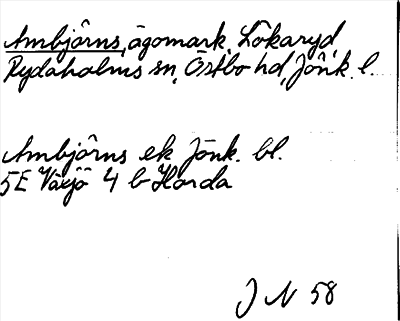 Ambjörns, ägomark, Lökaryd,
Rydaholms sn, Östbo hd, Jönk. l.
Ambjörns ek Jönk. bl.
5E Växjö 4 b Horda
J N 58